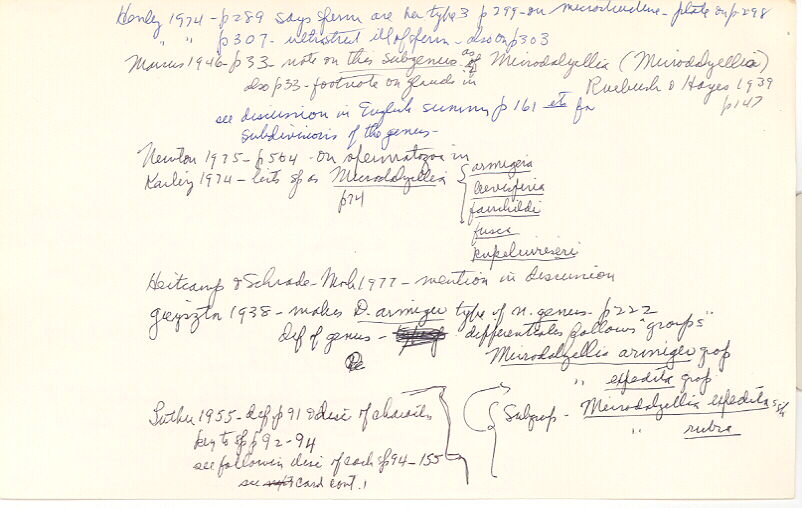 Henley 1974 - p289 says sperm are her type 3 p 299 - on microstructure - plate on p 298
" " p 307 - ultrastruct ill of sperm - also on p303
Marcus 1946 - p33 note on this subgenus as of Microdalyellia (Microdalyellia)
also p33 - footnote on glands in Ruebush & Hayes 1939
p147
see discussion in English summ p 161 etc for
subdivisions of the genus -
Newton 1975 - p564 - on spermatozoa in
Karling 1974 - lists sp as Microdalyellia
p74
armigera
brevispina
fairchildi
fusca
kupelwieseri
Heitcamp & Schrade-Moh 1977 - mention in discussion
Gieysztor 1938 - makes D. armiger type of n. genus - p222
def of genus - differentiates follows "groups"
Microdalyellia armiger grop
" expedita grop
Luther 1955 - def p 91 & disc of characts
Subgrop - Microdalyellia expedita
key to sp p 92-94
" rubra
see following disc of each sp 94-155
see card cont.